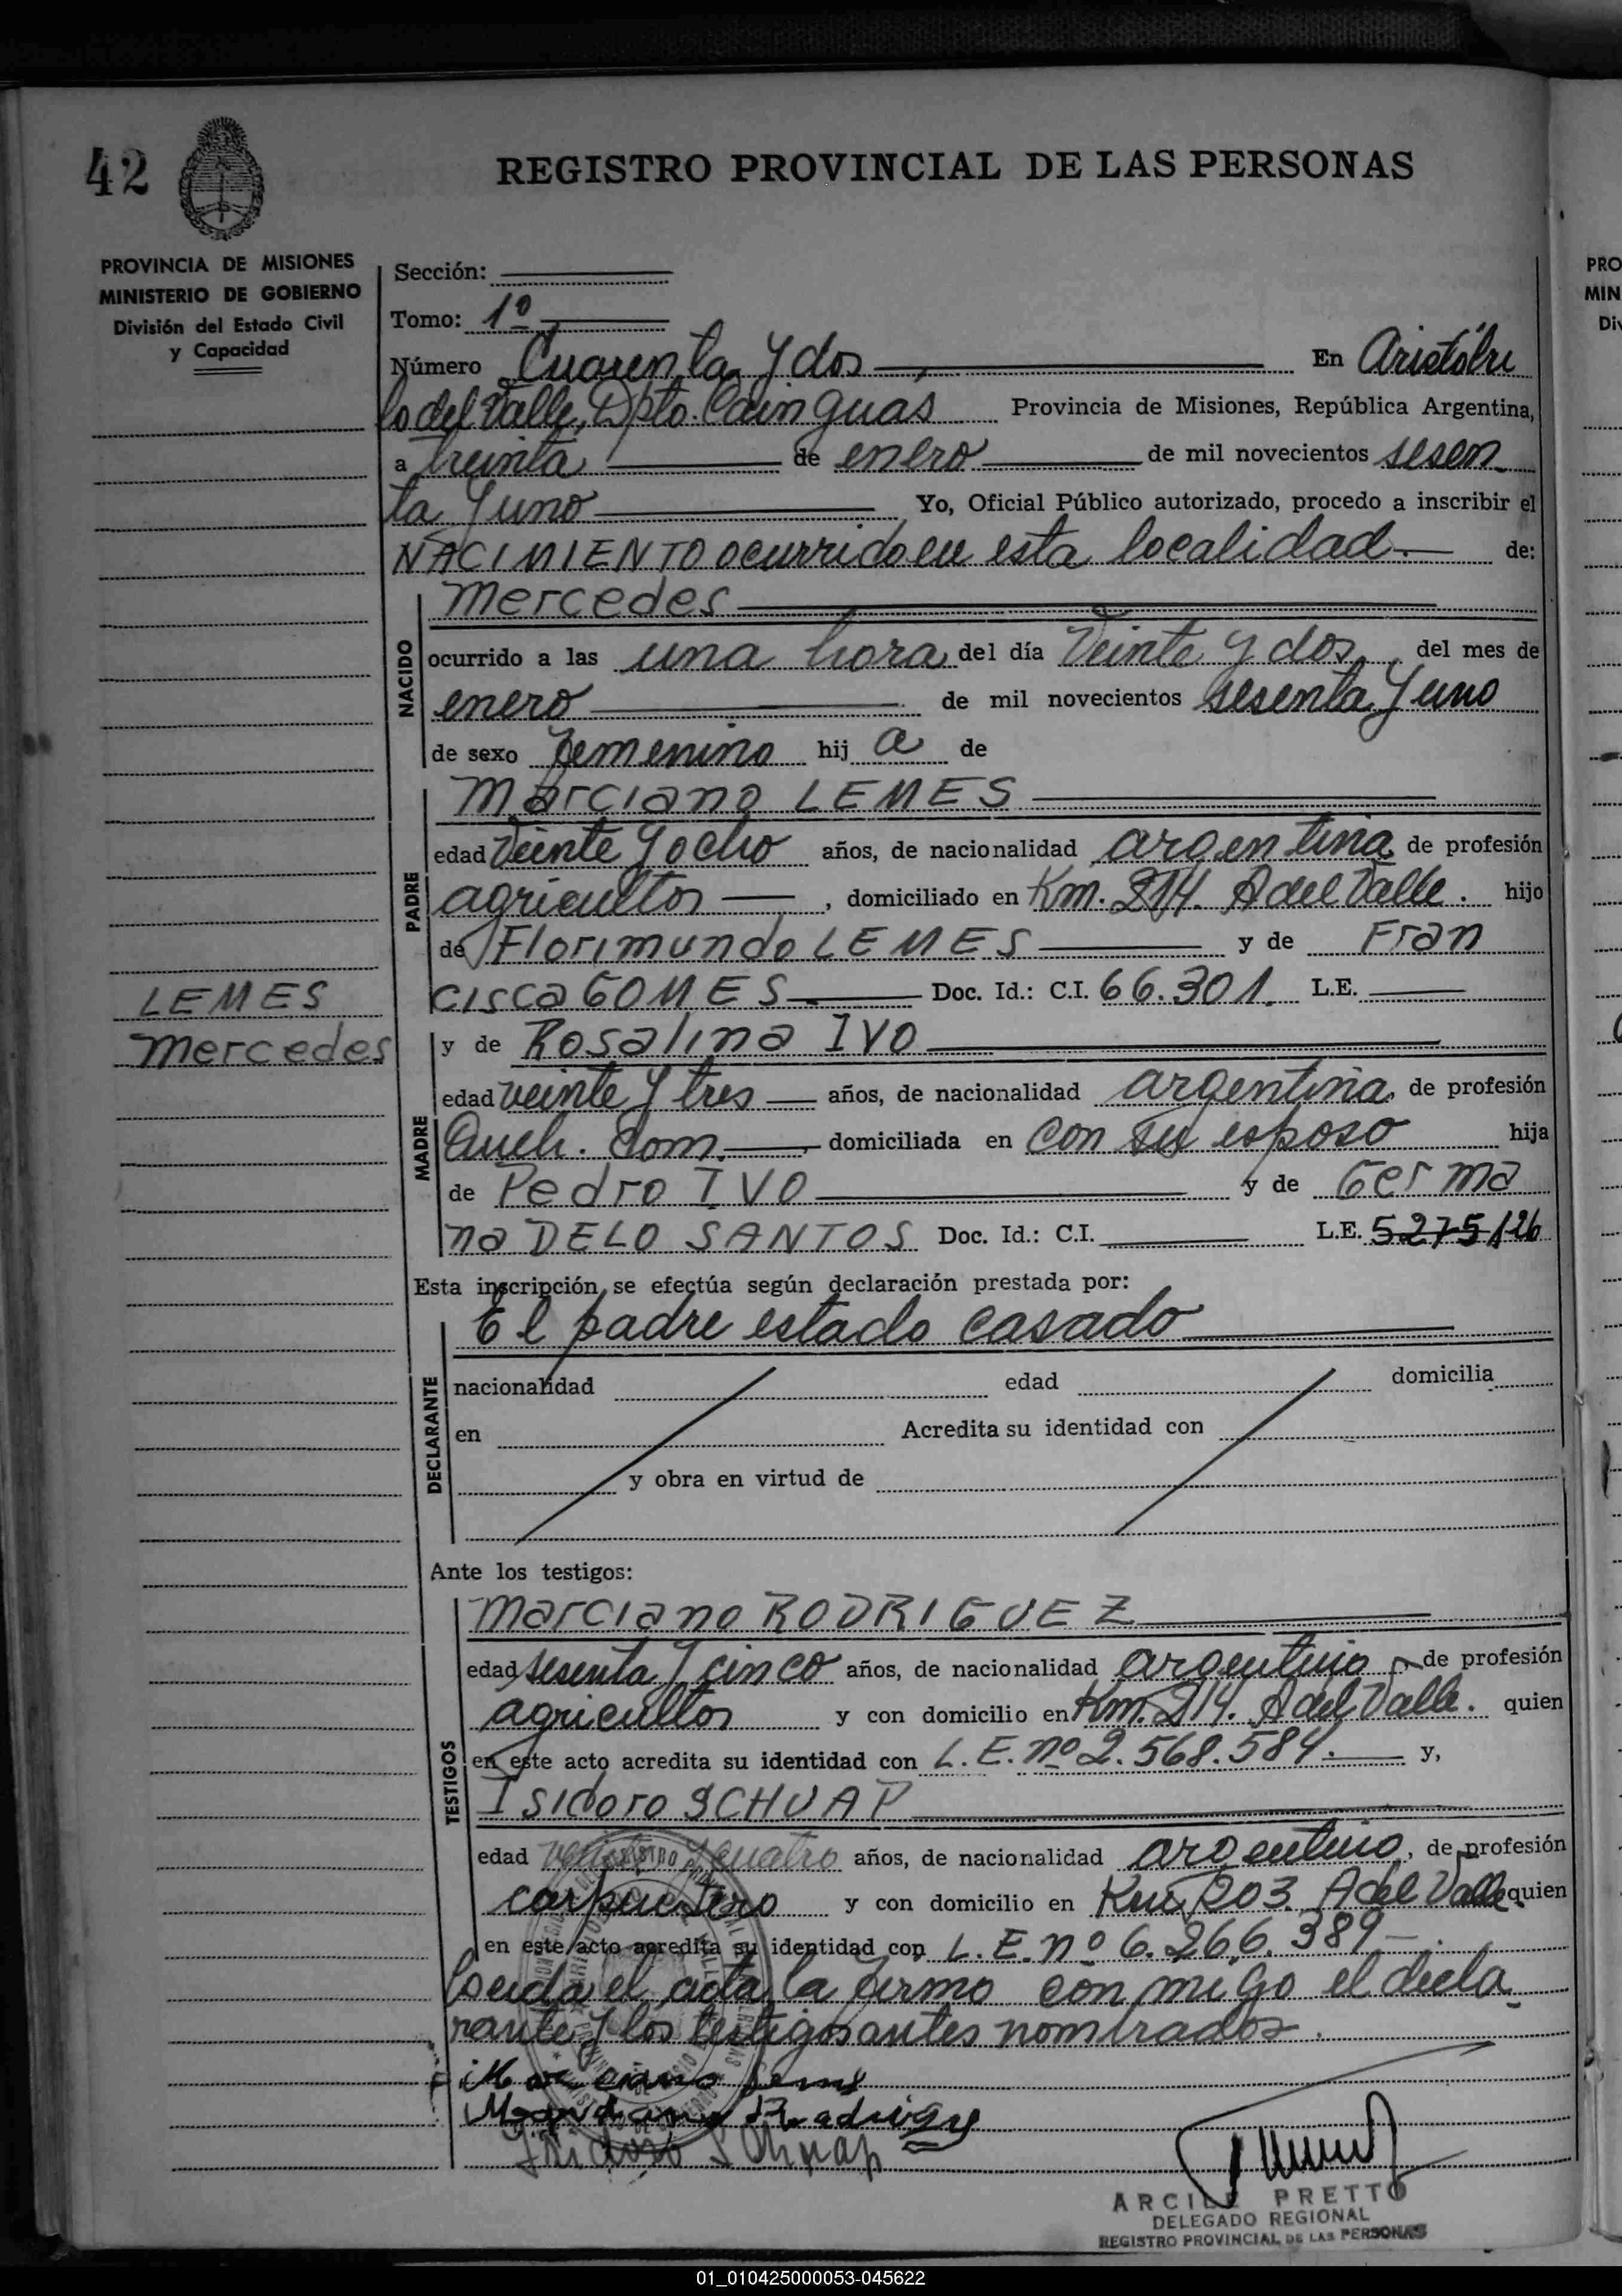 42
REGISTRO PROVINCIAL DE LAS PERSONAS
PROVINCIA DE MISIONES
MINISTERIO DE GOBIERNO
División del Estado Civil
y Capacidad
Sección:
Tomo: 1º
Número Cuarenta y dos En Aristóbu
lo del Valle, Dpto. Cainguas Provincia de Misiones, República Argentina,
a treinta de enero de mil novecientos sesen
ta y uno Yo, Oficial Público autorizado, procedo a inscribir el
NACIMIENTO ocurrido en esta localidad. de:
NACIDO
Mercedes
ocurrido a las una hora del día Veinte y dos, del mes de
enero de mil novecientos sesenta y uno
de sexo femenino hij a de
PADRE
Marciano LEMES
edad Veinte y ocho años, de nacionalidad argentina de profesión
agricultor, domiciliado en Km. 214. A del Valle. hijo
de Florimundo LEMES y de Fran
cisca GOMES Doc. Id.: C.I. 66.301. L.E.
LEMES
Mercedes
MADRE
y de Rosalina IVO
edad veinte y tres años, de nacionalidad argentina, de profesión
Queh. dom. domiciliada en con su esposo hija
de Pedro IVO y de Germa
na DELO SANTOS Doc. Id.: C.I. L.E. 5275126
Esta inscripción, se efectúa según declaración prestada por:
DECLARANTE
El padre estado casado
nacionalidad edad domicilia
en Acredita su identidad con
y obra en virtud de
Ante los testigos:
TESTIGOS
Marciano RODRIGUEZ
edad sesenta y cinco años, de nacionalidad argentino, de profesión
agricultor y con domicilio en Km. 214. A del Valle. quien
en este acto acredita su identidad con L.E. nº 2.568.584. y,
Isidoro SCHUAP
edad veinte y cuatro años, de nacionalidad argentino, de profesión
carpintero y con domicilio en Km 203. A del Valle quien
en este acto acredita su identidad con L.E. nº 6.266.389
Leida el acta la firmo con migo el decla
rante y los testigos antes nombrados.
Marciano Lemes
Marciano Rodrigue
Isidoro Schuap
ARCILE PRETTO
DELEGADO REGIONAL
REGISTRO PROVINCIAL DE LAS PERSONAS
PRO
MIN
Div
01_010425000053-045622